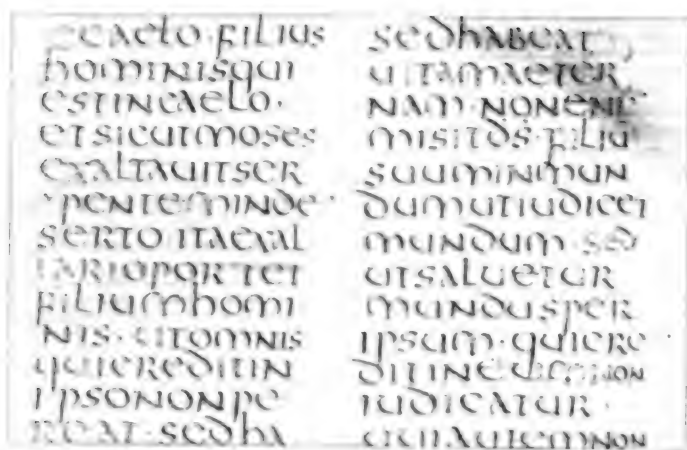 ecaelo·filius
hominisqui
estincaelo·
etsicutmoses
exaltauitser
pentemınde
serto·itaexal
tarioportet
filiumhomi
nis·utomnis
quicreditin
ipsononpe
reat·sedha
sedhabeat
uitamaeter
nam·nonenı̄
misitds̄·filiū
suuminmun
dumutiudicet
mundum·sed
utsaluetur
mundusper
ipsum·quicre
ditineum non
iudicatur·
quiautemnon